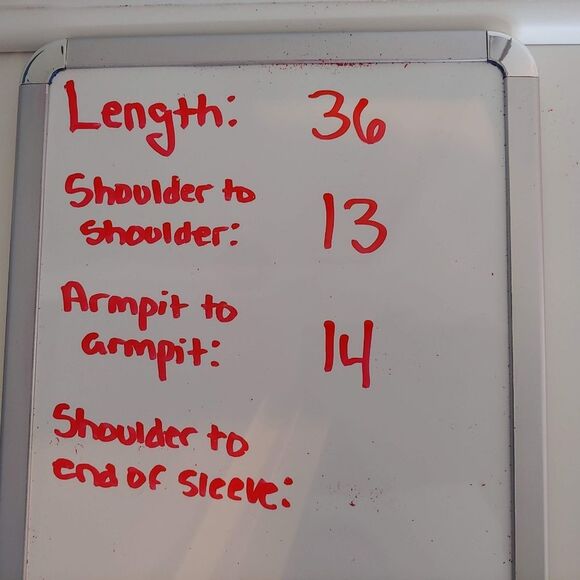 Length: 36
Shoulder to
shoulder: 13
Armpit to
armpit: 14
Shoulder to
end of sleeve: